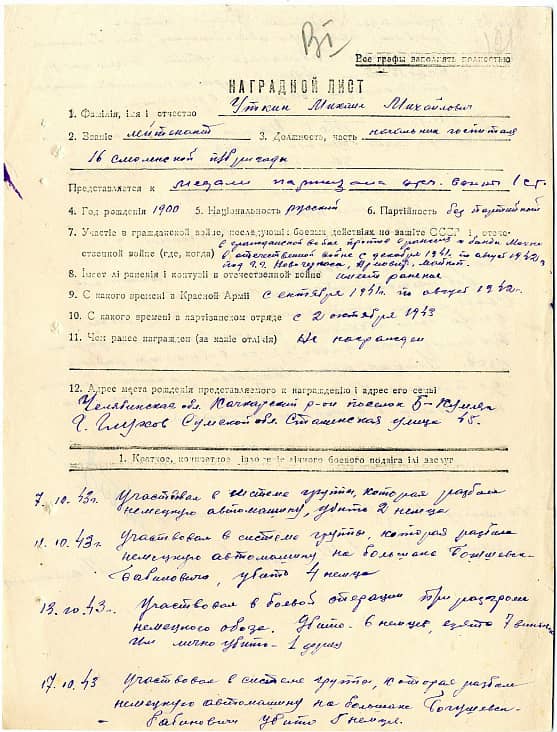 ВI
Все графы заполнять полностью
НАГРАДНОЙ ЛИСТ
1. Фамілія, імя і отчество Уткин Михаил Михайлович
2. Званіе лейтенант 3. Должность, часть начальник госпиталя
16 Смоленской п/бригады
Представляется к медали партизана отеч. войны I ст.
4. Год рождения 1900 5. Національность русский 6. Партійность без партийный
7. Участіе в гражданской войне, последующі: боевых действіях по защіте СССР і отече-
в гражданской войне против и банды Махно
ственной войне (где, когда) в отечественной войне с декабря 1941 г. по август 1942 г.
под г.г. Новочеркаск,
8. Імеет лі раненія і контузіі в отечественной войне имеет ранение
9. С какого времені в Красной Арміі с сентября 1941 г. по август 1942 г.
10. С какого времені в партізанском отряде с 2 октября 1943
11. Чем ранее награжден (за какіе отлічія) Не награжден
12. Адрес места рожденія представляемого к награжденію і адрес его семьі
Челябинская обл. Качкарский р-он поселок Б-Кумляк
г. Глухов Сумской обл. Сталинская улица 45.
1. Краткое, конкретное ізложеніе лічного боевого подвіга ілі заслуг
7.10.43 г. Участвовал в системе группы, которая разбила
немецкую автомашину, убито 2 немца
11.10.43 г. Участвовал в системе группы, которая разбила
немецкую автомашину на большаке Богушевск-
Бабиновичи, убито 4 немца
13.10.43 г. Участвовал в боевой операции при разгроме
немецкого обоза. Убито 6 немцев, взято 7
Им лично убит 1
17.10.43 Участвовал в системе группы, которая разбила
немецкую автомашину на большаке Богушевск-
- Бабиновичи убито немца.